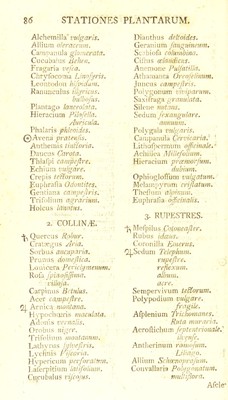 86 STATIONES PLANTARUM.
Alchemilla vulgaris.
Allium oleraceum.
Campanula glomerata.
Cucubalus Behen.
Fragaria vesca.
Chrysocoma Linosyris.
Leontodon hispidum.
Ranunculus illyricus.
bulbosus.
Plantago lanceolata.
Hieracium Pilosella.
Auricula.
Phalaris phleoides.
Avena pratensis.
Anthemis tinctoria.
Daucus Carota.
Thlaspi campestre.
Echium vulgare.
Crepis tectorum.
Euphrasia Odontites.
Gentiana campestris.
Trifolium agrarium.
Holcus lanatus.
2. COLLINÆ.
Quercus Robur.
Cratægus Aria.
Sorbus aucuparia.
Prunus domestica.
Lonicera Periclymenum.
Rosa spinosissima.
Carpinus Betulus.
Acer campestre.
Arnica montana.
Hypochæris maculata.
Adonis vernalis.
Orobus niger.
Trifolium montanum.
Lathyrus sylvestris.
Lychnis Viscaria.
Hypericum perforatum.
Laserpitium latifolium.
Cucubalus viscosus.
Dianthus deltoides.
Geranium sanguineum.
Scabiosa columbina.
Cistus œlandicus.
Anemone Pulsatilla.
Athamanta Oreoselinum.
Juncus campestris.
Polygonum viviparum.
Saxifraga granulata.
Silene nutans.
Sedum sexangulare.
annuum.
Polygala vulgaris.
Campanula Cervicaria.
Lithospermum officinale.
Achillea Millefolium.
Hieracium præmorsum.
dubium.
Ophioglossum vulgatum.
Melampyrum cristatum.
Thesium alpinum.
Euphrasia officinalis.
3. RUPESTRES.
Mespilus Cotoneaster.
Rubus idæus.
Coronilla Emerus.
Sedum Telephium.
rupestre.
reflexum.
album.
acre.
Sempervivum tectorum.
Polypodium vulgare.
fragile.
Asplenium Trichomanes.
Ruta muraria.
Acrostichum septentrionale.
ilvense.
Anthericum ramosum.
Liliago.
Allium Schœnoprasum.
Convallaria Polygonatum.
multiflora.